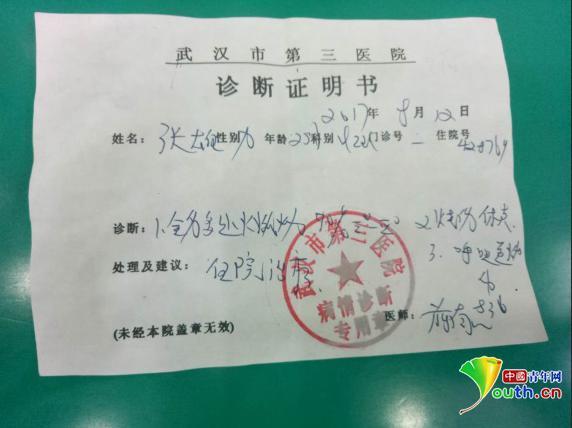 武汉市第三医院
诊断证明书
2017年8月12日
姓名：张 性别 年龄23科别 门诊号 — 住院号
诊断：1.全身多处火焰烧伤 70% 2.烧伤休克
3.呼吸道烧伤
处理及建议：住院治疗
武汉市第三医院
病情诊断
专用章
医师：
(未经本院盖章无效)
中國青年网
Youth.cn